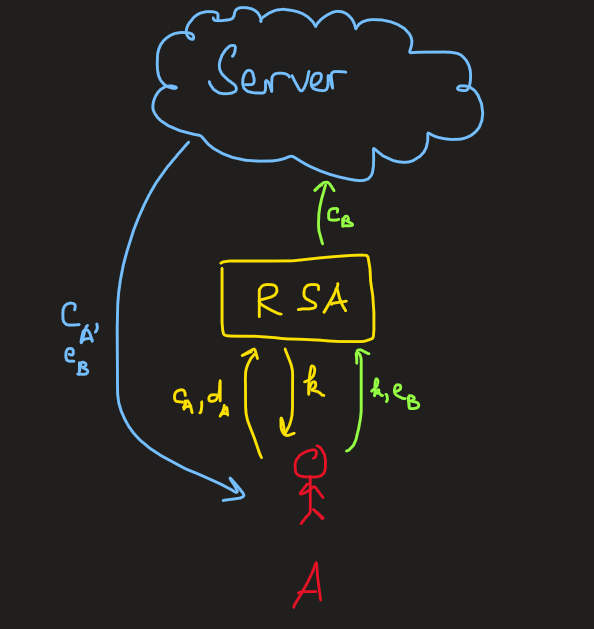 Server
C_B
RSA
C_A,
e_B
c_A, d_A
k
k, e_B
A